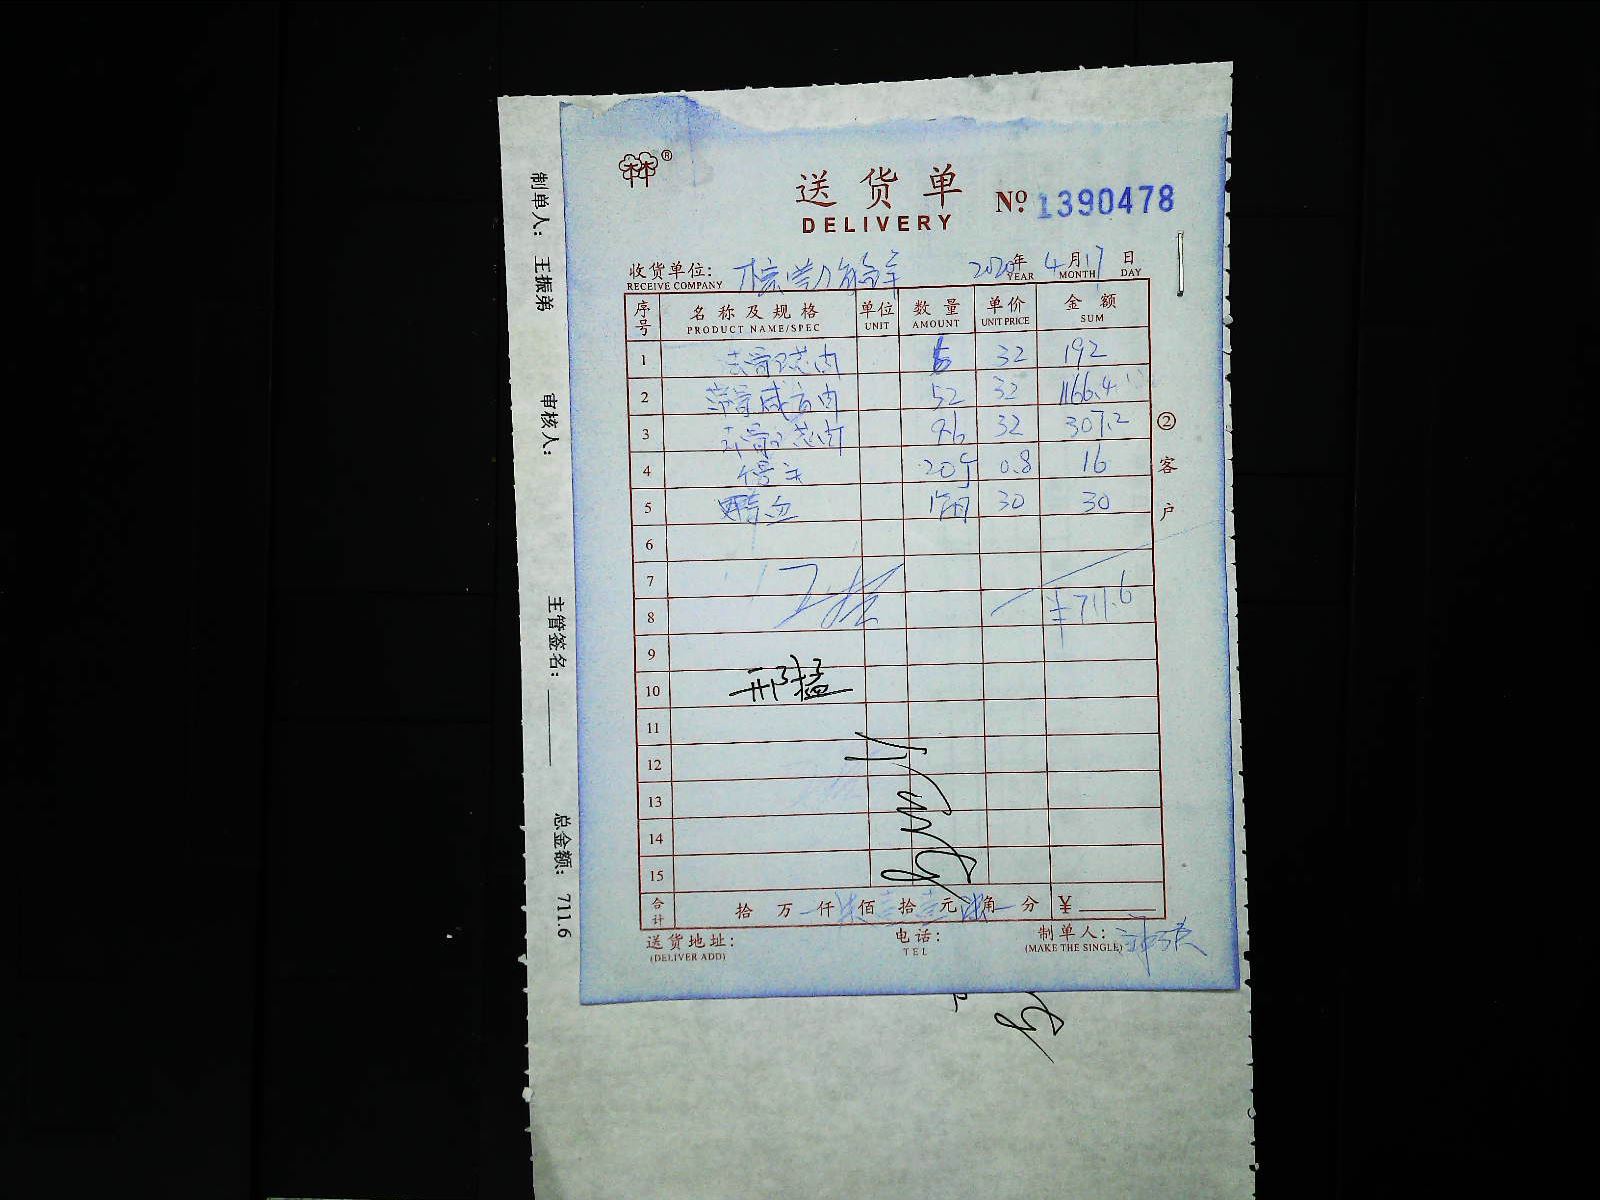 ®
送货单
DELIVERY
Nº. 1390478
收货单位:
RECEIVE COMPANY
2020年 4月17日
YEAR MONTH DAY
序号 名称及规格 单位 数量 单价 金额
PRODUCT NAME/SPEC UNIT AMOUNT UNIT PRICE SUM
1 肉 6 32 192
2 带骨咸方肉 52 32 166.4
3 肉 9.6 32 307.2
4 20个 0.8 16
5 鸭血 30 30
6
7
8 ¥711.6
9
10 邢猛
11
12
13
14
15
合计 拾 万 仟 佰 拾 元 角 分 ¥
② 客户
送货地址:
(DELIVER ADD)
电话:
TEL
制单人:
(MAKE THE SINGLE)
制单人: 王振弟 审核人: 主管签名: 总金额: 711.6